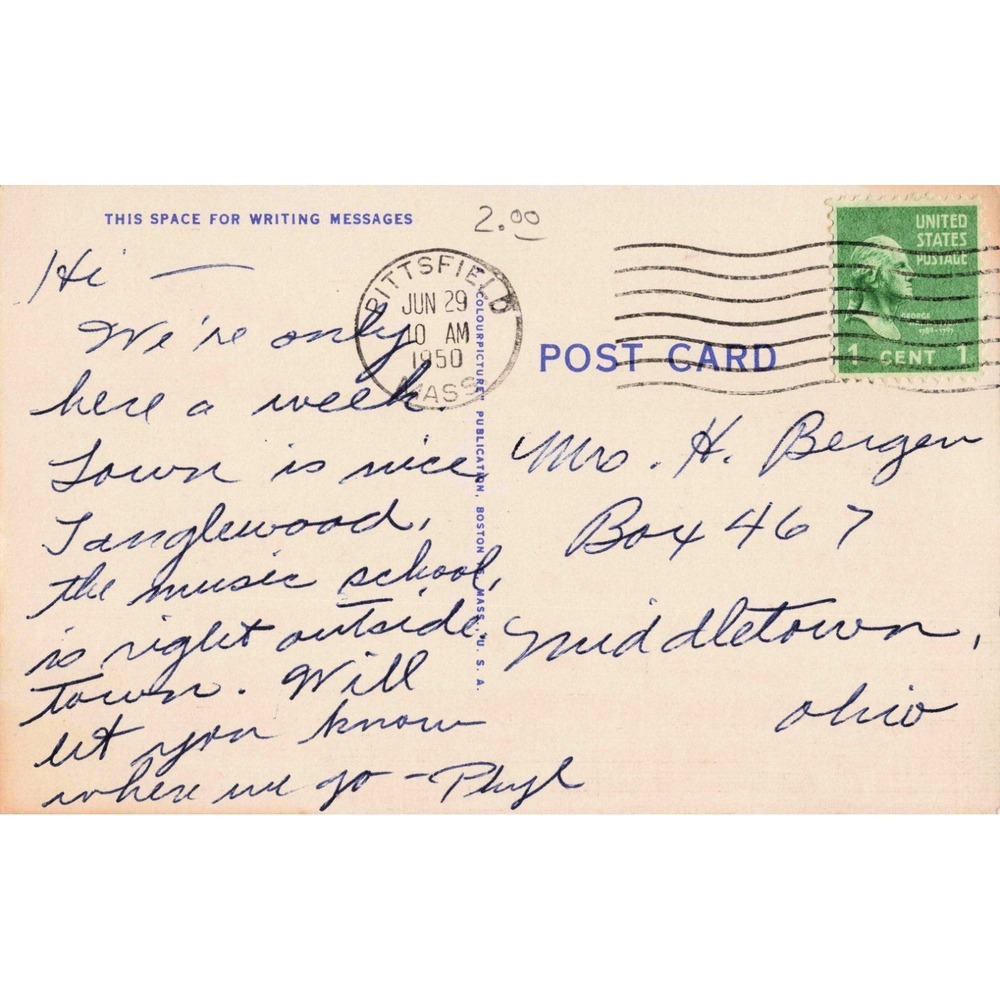 THIS SPACE FOR WRITING MESSAGES
2.00
Hi —
We're only
here a week.
Town is nice
Tanglewood,
the music school,
is right outside
town. Will
let you know
where we go - Phyl
PITTSFIELD
JUN 29
10 AM
1950
MASS
COLOURPICTURE PUBLICATION, BOSTON MASS., U.S.A.
POST CARD
UNITED
STATES
POSTAGE
GEORGE
1 CENT 1
Mrs. H. Bergen
Box 467
Middletown,
Ohio